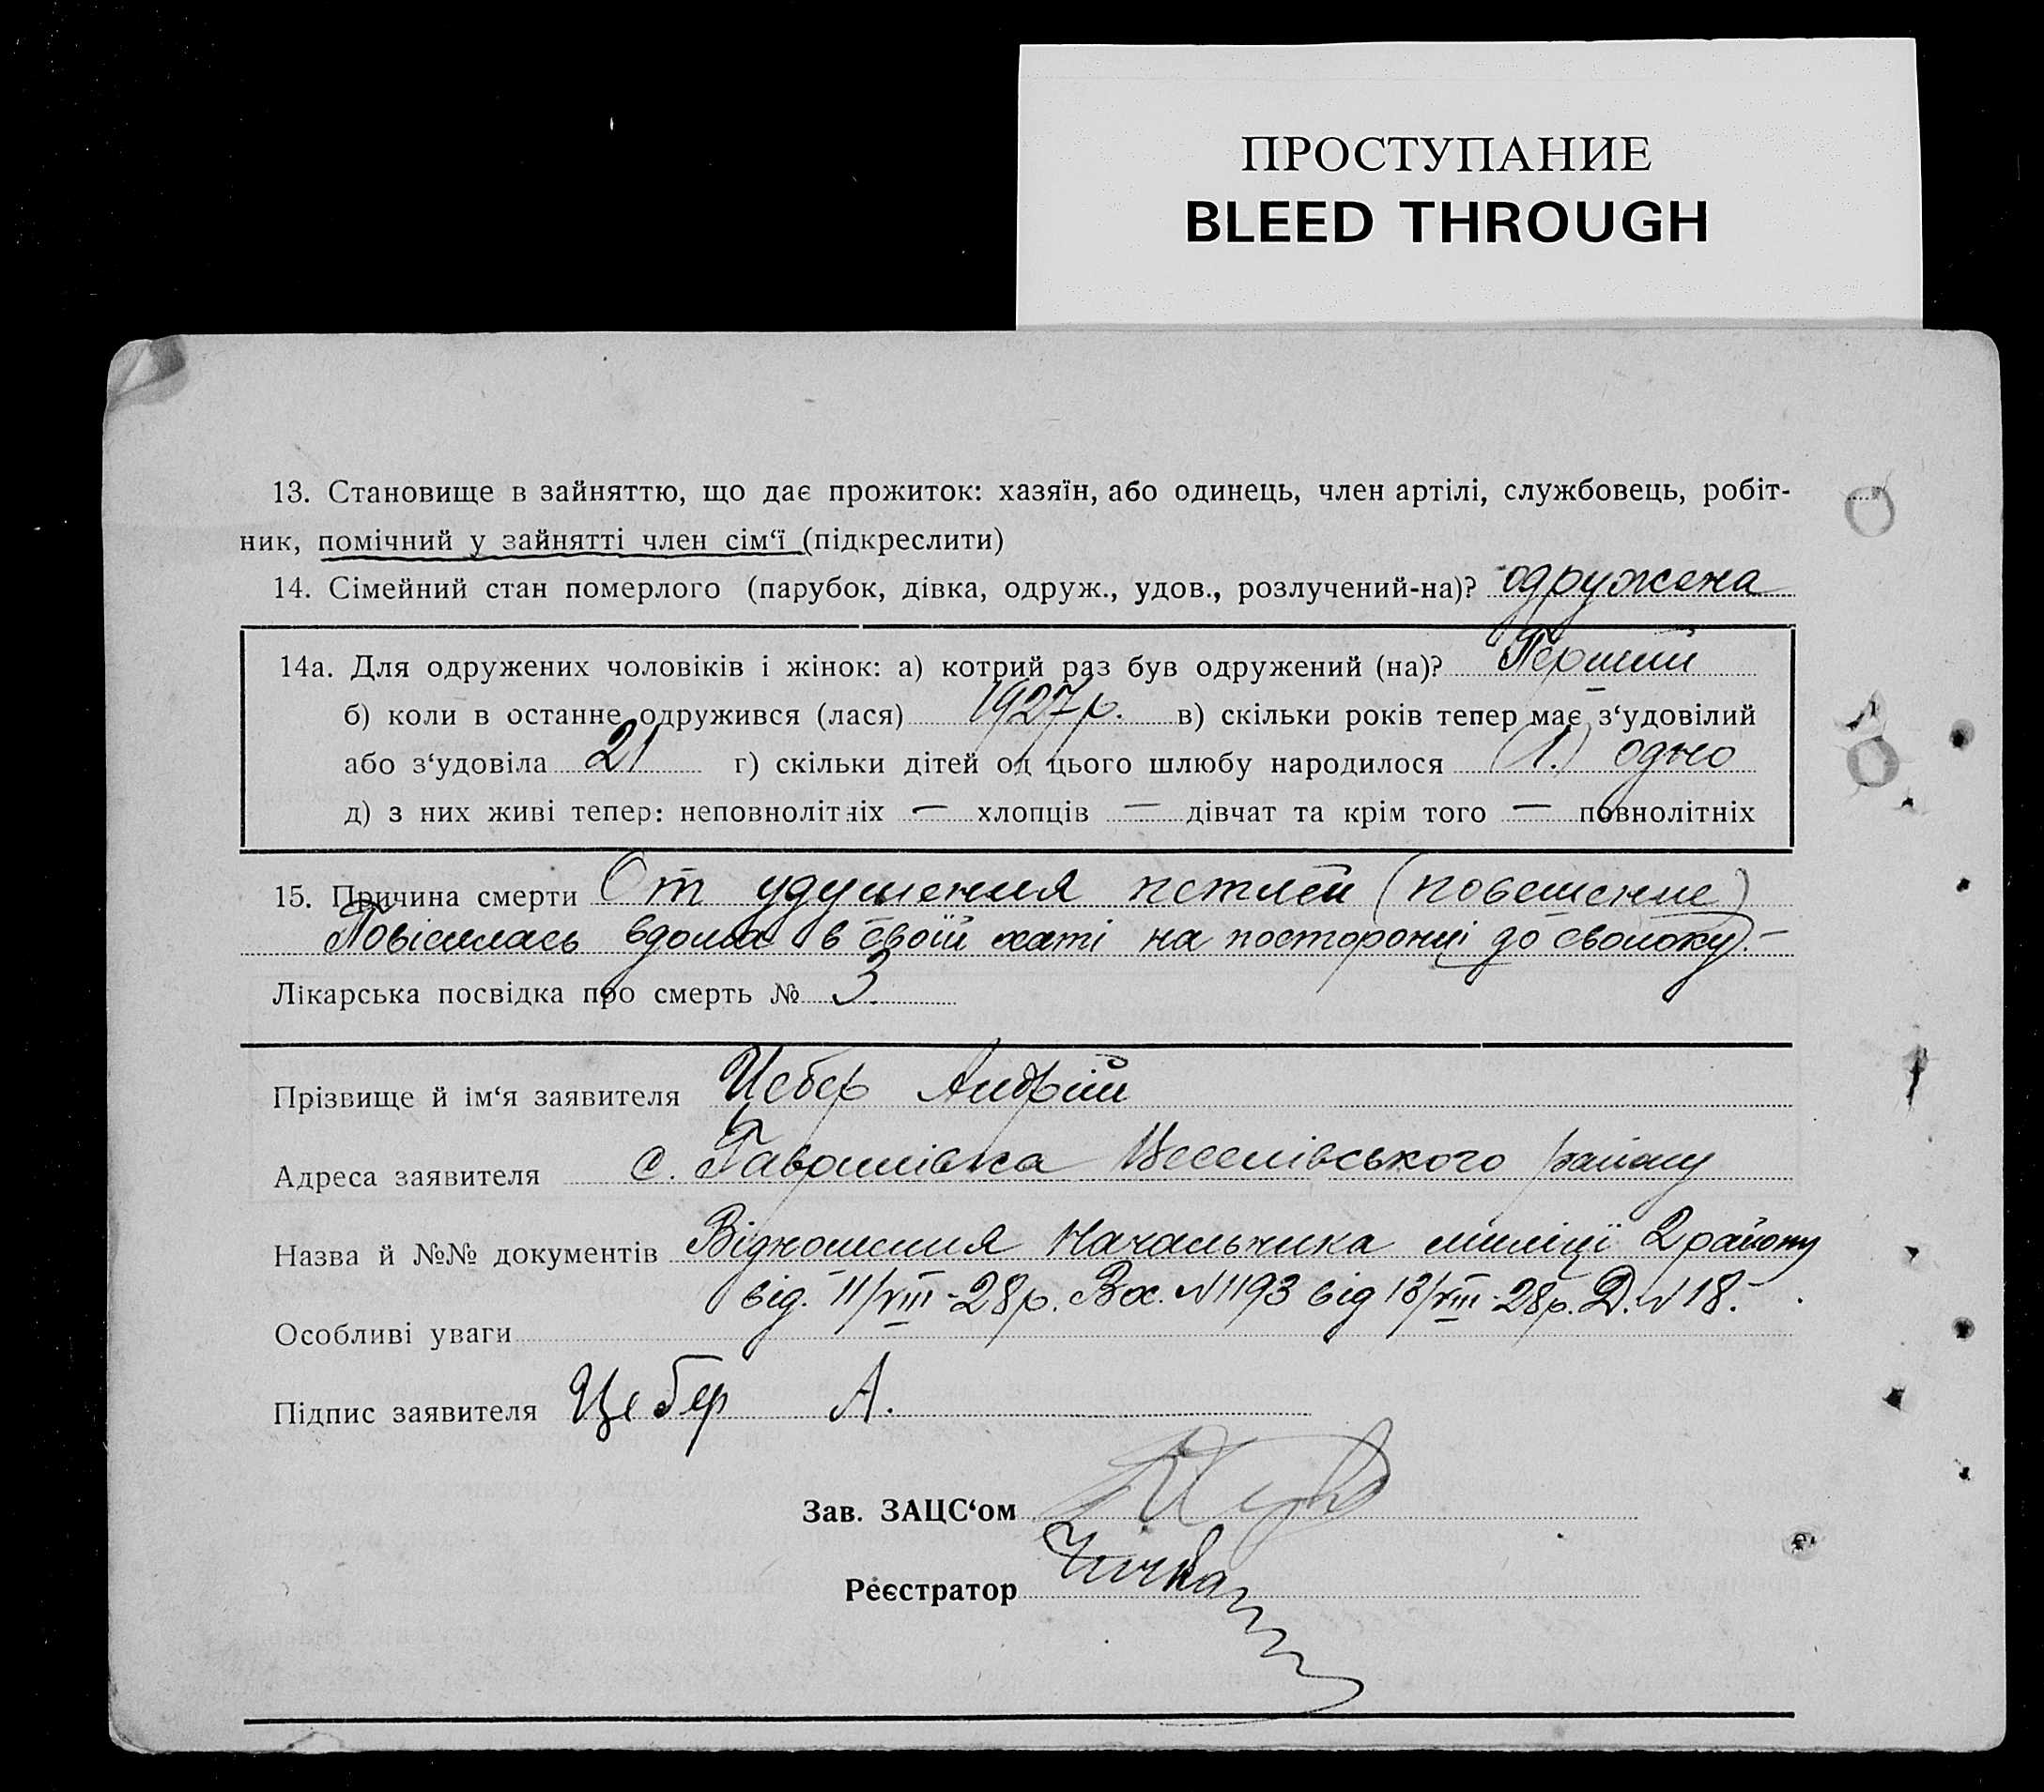 ПРОСТУПАНИЕ
BLEED THROUGH
13. Становище в зайняттю, що дає прожиток: хазяїн, або одинець, член артілі, службовець, робіт-
ник, помічний у зайнятті член сім‘ї (підкреслити)
14. Сімейний стан померлого (парубок, дівка, одруж., удов., розлучений-на)? одружена
14а. Для одружених чоловіків і жінок: а) котрий раз був одружений (на)? Перший
б) коли в останнє одружився (лася) 1927 р. в) скільки років тепер має з‘удовілий
або з‘удовіла 21 г) скільки дітей од цього шлюбу народилося (1.) одно
д) з них живі тепер: неповнолітніх — хлопців — дівчат та крім того — повнолітніх
15. Причина смерти От удушения петлей (повешение)
Повісилась вдома в своїй хаті на посторонці до сволоку. –
Лікарська посвідка про смерть № 3.
Прізвище й ім‘я заявителя Цебер Андрій
Адреса заявителя с. Гаврилівка Веселівського району
Назва й №№ документів Відношення Начальника міліції 2 району
від. 11/VIII-28р. Вх. N 1193 від 13/VIII-28р. Д. N 18.-
Особливі уваги
Підпис заявителя Цебер А.
Зав. ЗАЦС‘ом
Реєстратор